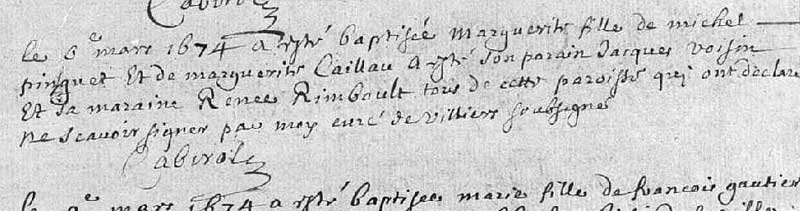 Cabirol
le 6e mars 1674 a esté baptisée marguerite fille de michel
pinguet Et de marguerite Caillau a esté son parain Jacques voisin
Et sa maraine Renee Rimboult tous de cette paroisse qui ont declaré
ne scavoir signer par moy curé de villiers soubsigné
Cabirol
le 9e mars 1674 a esté baptisee marie fille de francois gautier